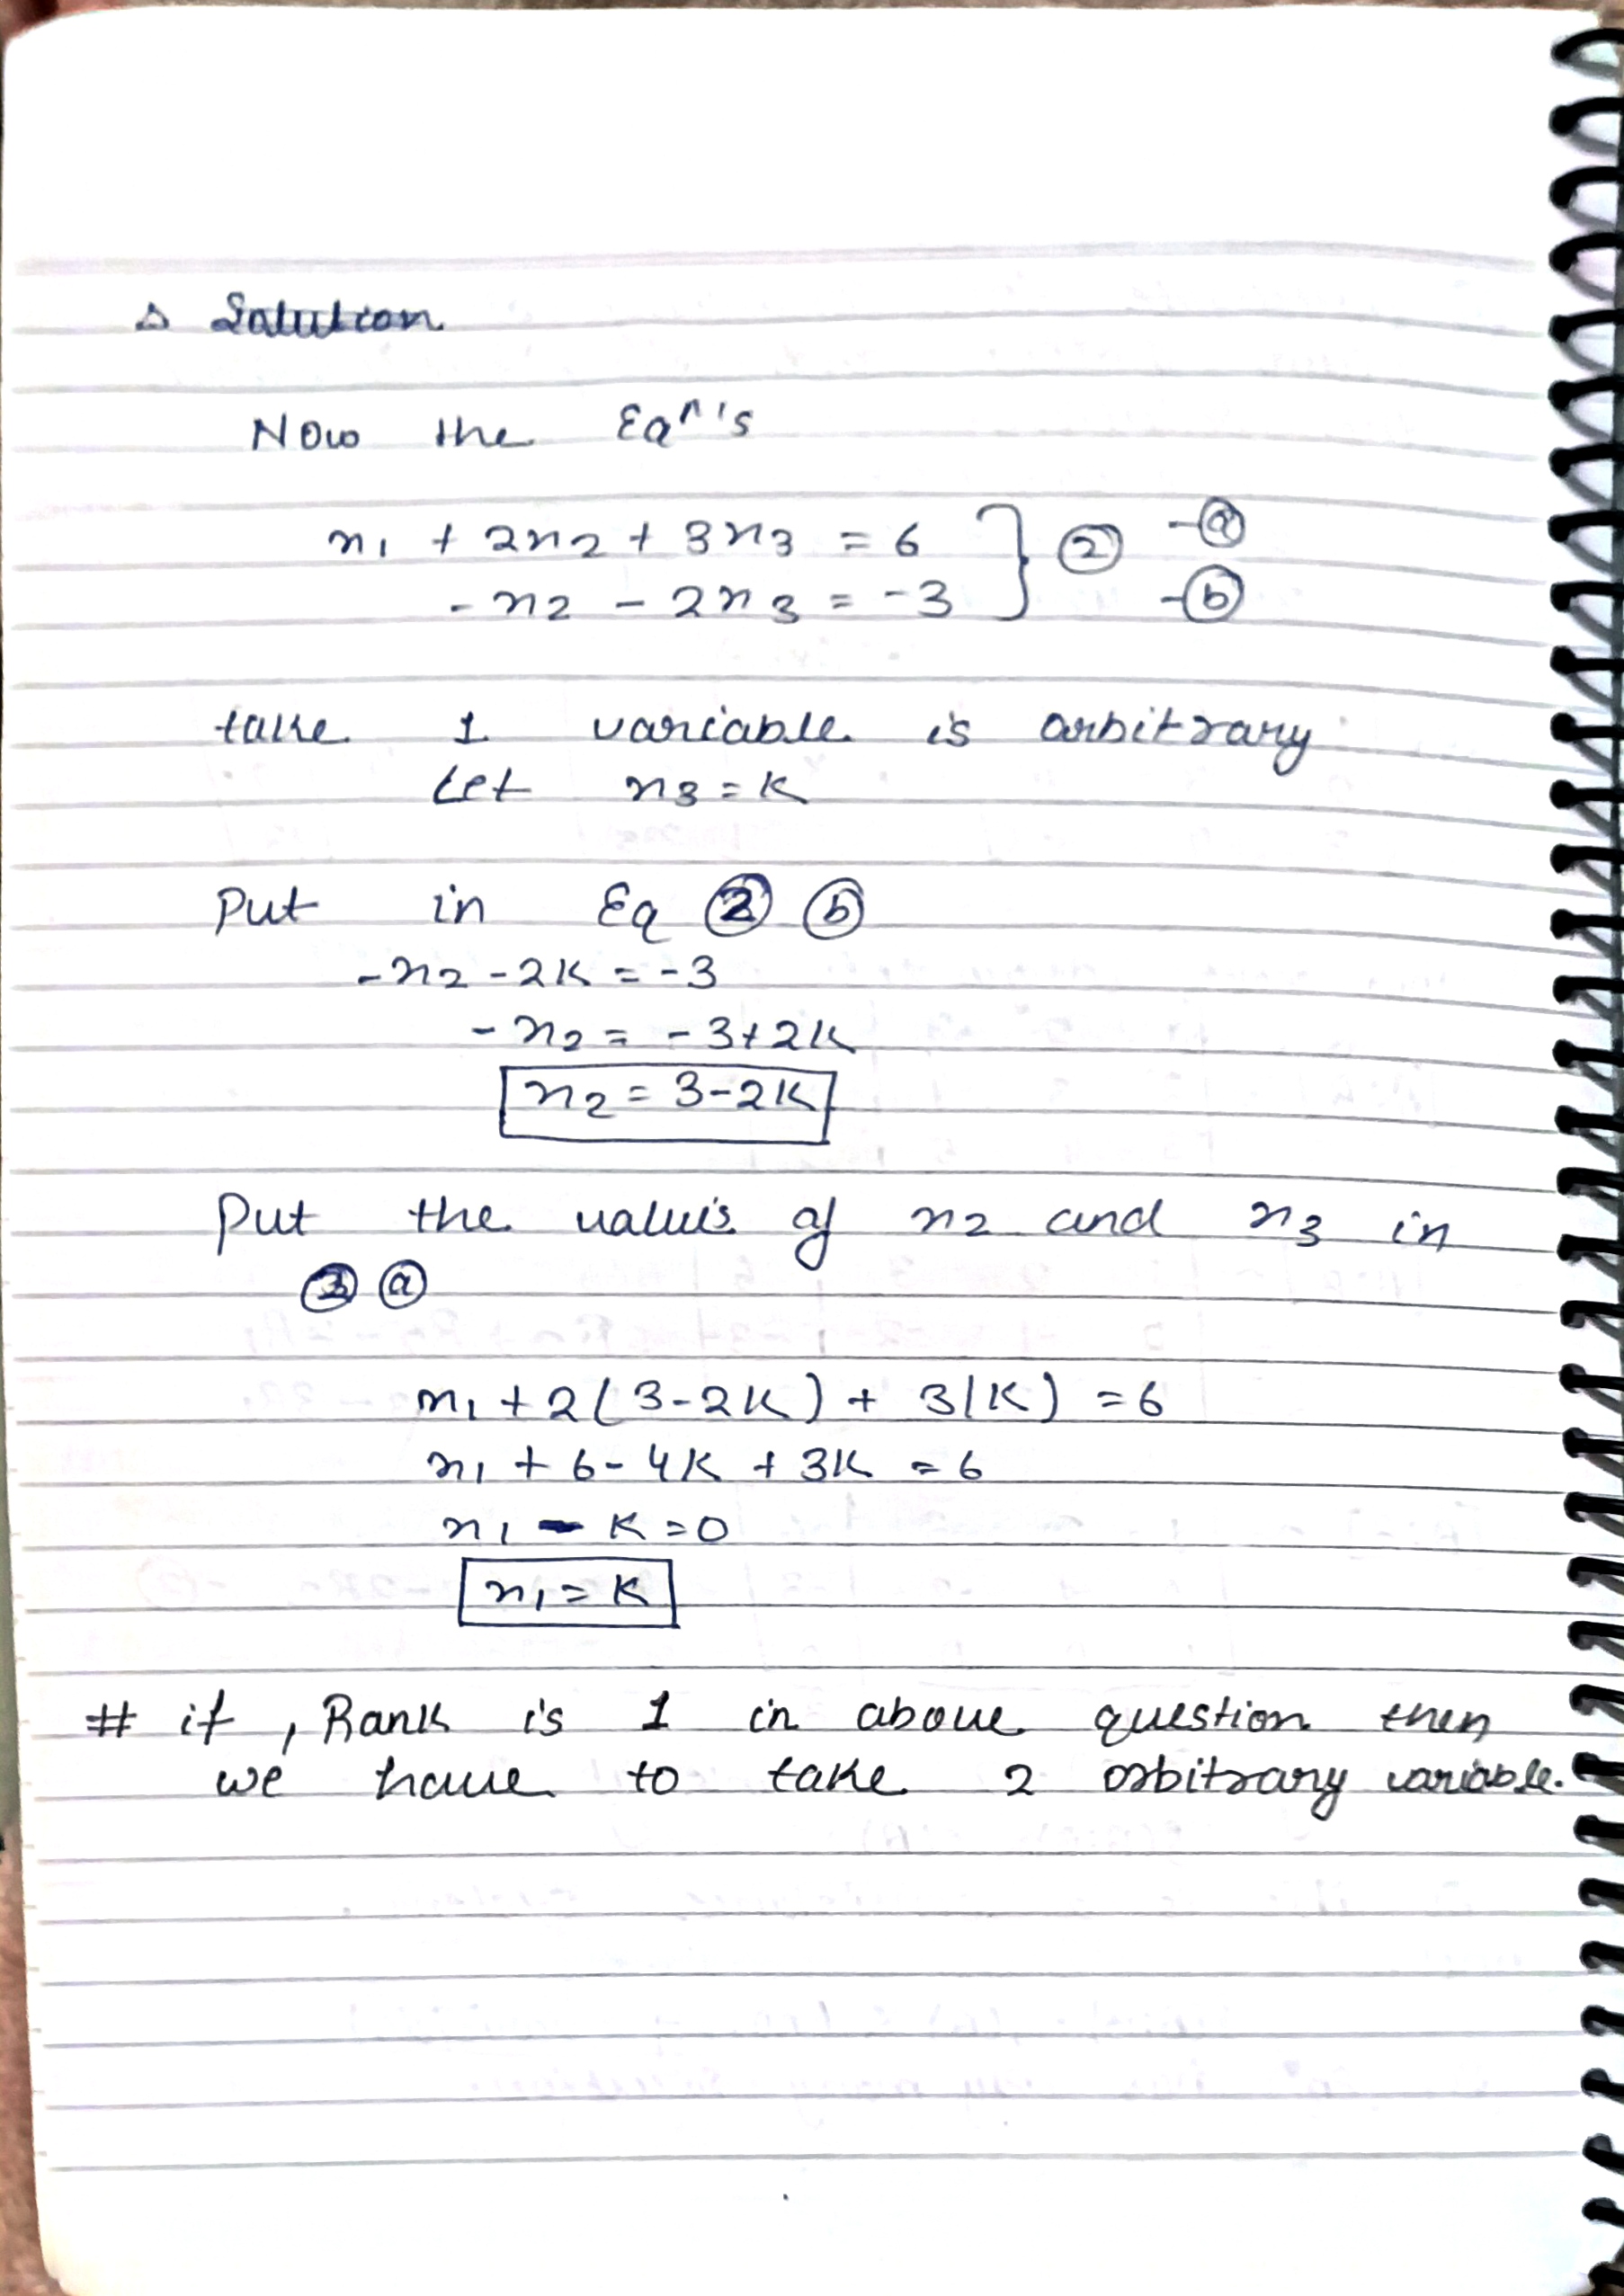 △ Solution
Now the Eqⁿ's
x₁ + 2x₂ + 3x₃ = 6 } ② -ⓐ
-x₂ - 2x₃ = -3 -ⓑ
take 1 variable is arbitrary
Let x₃ = K
Put in Eq ② ⓑ
-x₂ - 2K = -3
-x₂ = -3+2K
x₂ = 3-2K
Put the values of x₂ and x₃ in
② ⓐ
x₁ + 2(3-2K) + 3(K) = 6
x₁ + 6 - 4K + 3K = 6
x₁ - K = 0
x₁ = K
# if , Rank is 1 in above question then
we have to take 2 arbitrary variable.